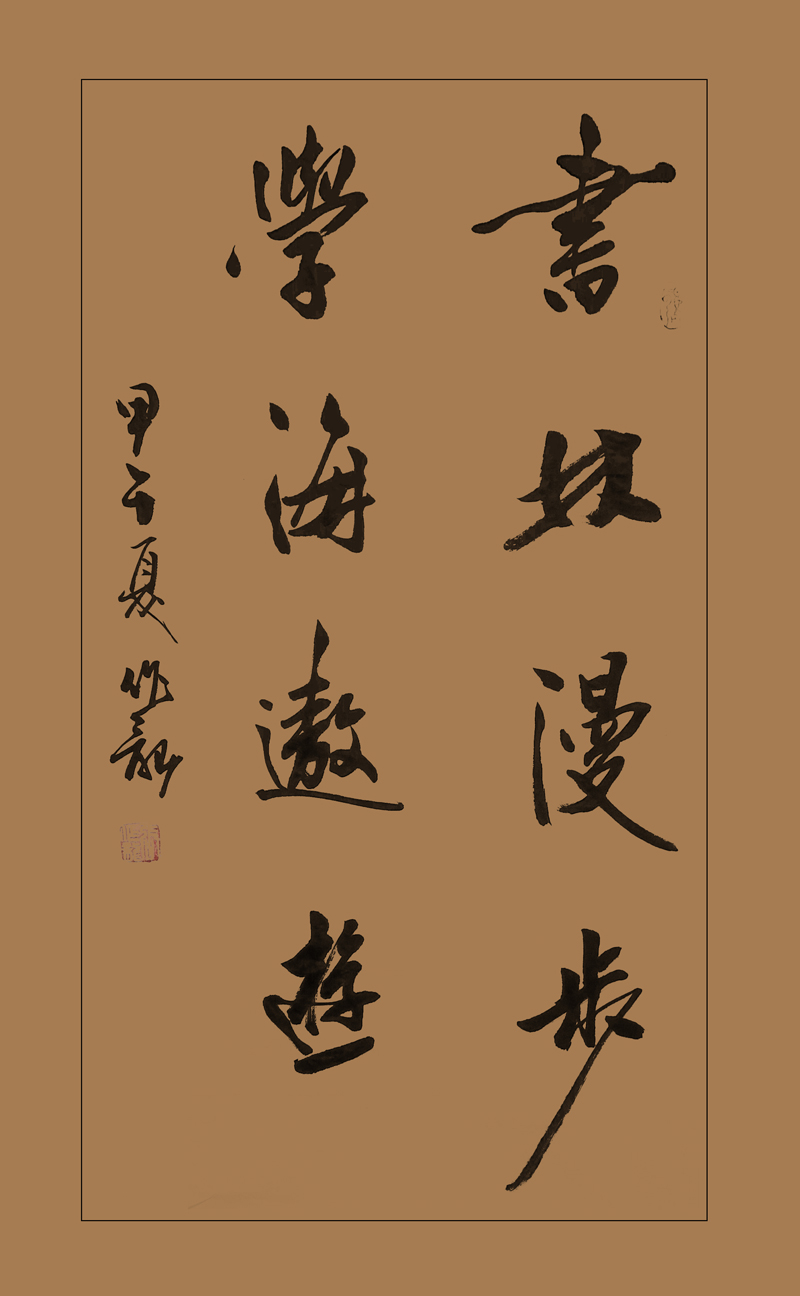 書漫步
學海遨遊
甲午夏作